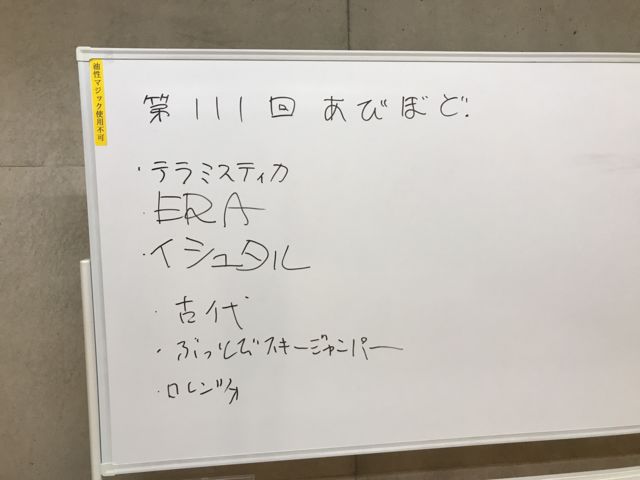 油性マジック使用不可
第111回 あびぼど.
・テラミスティカ
・ERA
・イシュタル
・古代
・ぶっとびスキージャンパー
・ロレンツォ